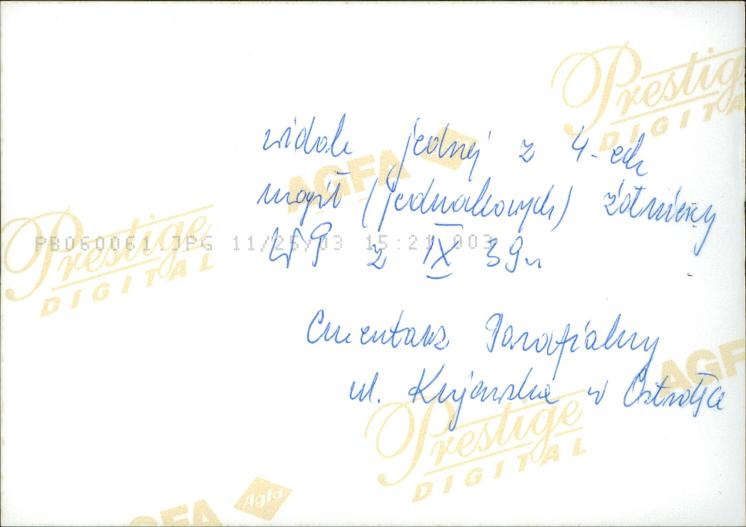 widok jednej z 4-ech
mogił (jednakowych) żołnierzy
PB060061.JPG 11/25/03 15:21 003
WP z IX 39r
Cmentarz Parafialny
ul. Kujawska w
Prestige
DIGITAL
AGFA
Prestige
DIGITAL
AGFA
Prestige
DIGITAL
AGFA
Agfa